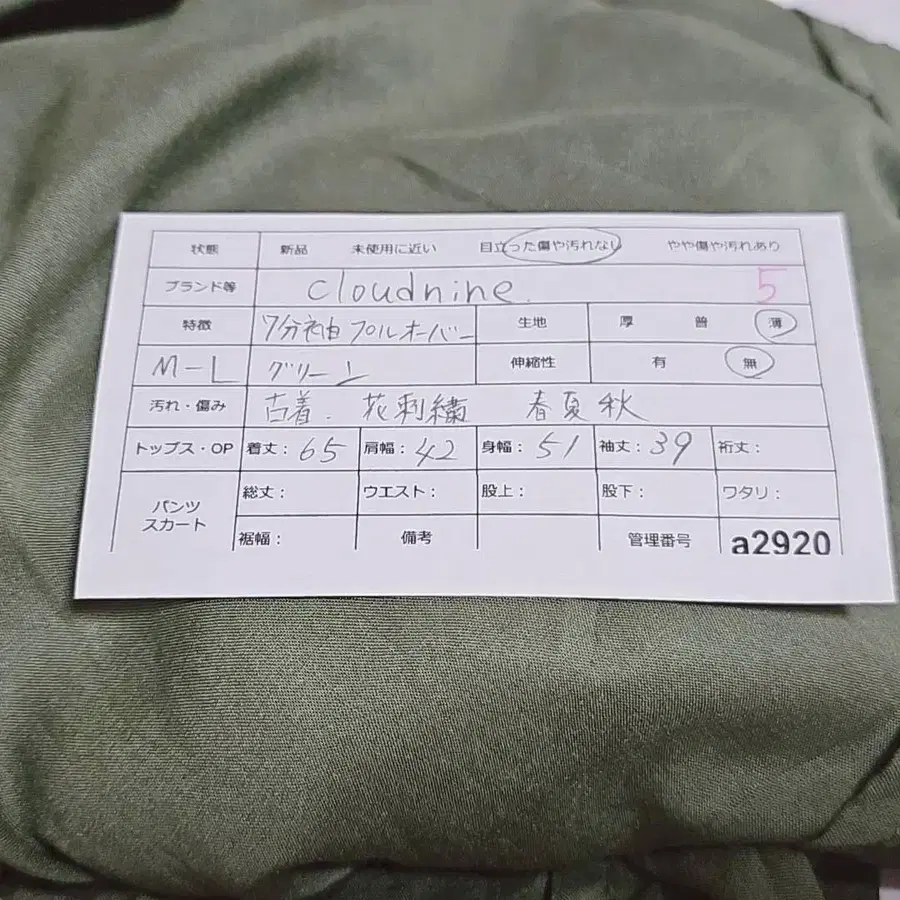 状態 新品 未使用に近い 目立った傷や汚れない やや傷や汚れあり
ブランド等 cloudnine. 5
特徴 7分袖 プルオーバー 生地 厚 普 薄
M-L グリーン 伸縮性 有 無
汚れ・傷み 古着. 花刺繍 春夏秋
トップス・OP 着丈：65 肩幅：42 身幅：51 袖丈：39 裄丈：
パンツ スカート 総丈： ウエスト： 股上： 股下： ワタリ：
裾幅： 備考 管理番号 a2920